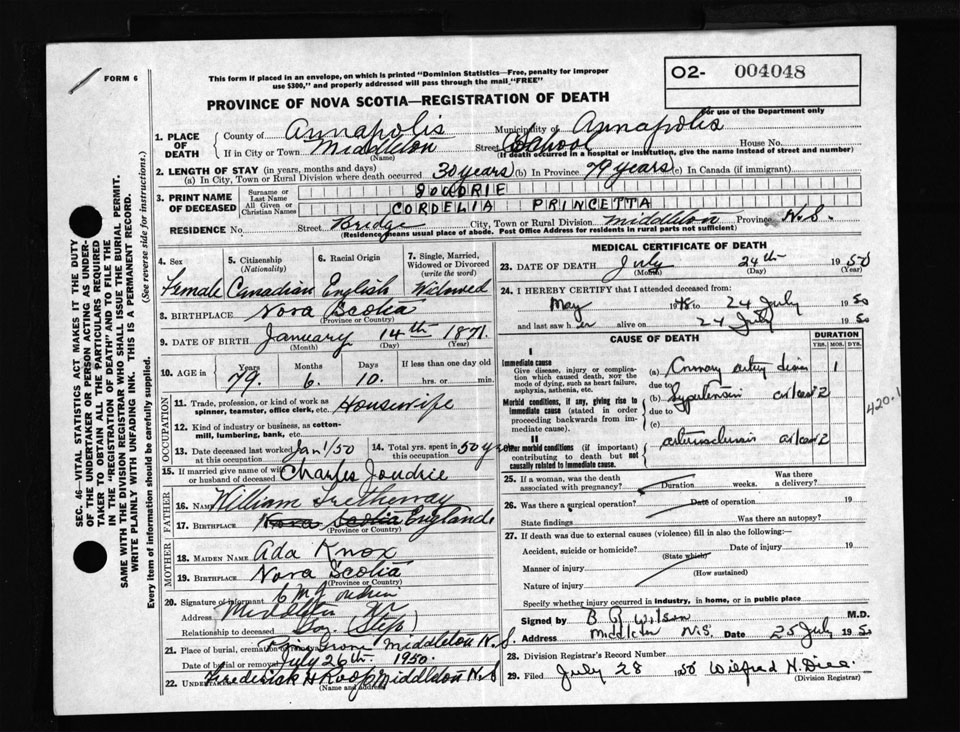 FORM 6
This form if placed in an envelope, on which is printed "Dominion Statistics—Free, penalty for improper
use $300," and properly addressed will pass through the mail "FREE"
O2- 004048
For use of the Department only
PROVINCE OF NOVA SCOTIA—REGISTRATION OF DEATH
SEC. 46—VITAL STATISTICS ACT MAKES IT THE DUTY
OF THE UNDERTAKER OR PERSON ACTING AS UNDER-
TAKER TO OBTAIN ALL THE PARTICULARS REQUIRED
IN THE "REGISTRATION OF DEATH" AND TO FILE THE
SAME WITH THE DIVISION REGISTRAR WHO SHALL ISSUE THE BURIAL PERMIT.
WRITE PLAINLY WITH UNFADING INK. THIS IS A PERMANENT RECORD.
(See reverse side for instructions.)
Every item of information should be carefully supplied.
1. PLACE OF DEATH
County of Annapolis Municipality of Annapolis
If in City or Town Middleton Street School House No.
(Name) (If death occurred in a hospital or institution, give the name instead of street and number)
2. LENGTH OF STAY (in years, months and days)
(a) In City, Town or Rural Division where death occurred 30 years (b) In Province 79 years (c) In Canada (if immigrant)
3. PRINT NAME OF DECEASED
Surname or Last Name JOUDRIE
All Given or Christian Names CORDELIA PRINCETTA
RESIDENCE No. Street Bridge City, Town or Rural Division Middleton Province N.S.
(Residence means usual place of abode. Post Office Address for residents in rural parts not sufficient)
4. Sex 5. Citizenship (Nationality) 6. Racial Origin 7. Single, Married, Widowed or Divorced (write the word)
Female Canadian English Widowed
8. BIRTHPLACE Nova Scotia
(Province or Country)
9. DATE OF BIRTH January 14th 1871
(Month) (Day) (Year)
10. AGE in Years Months Days If less than one day old
79. 6. 10. hrs. or min.
OCCUPATION
11. Trade, profession, or kind of work as
spinner, teamster, office clerk, etc. Housewife
12. Kind of industry or business, as cotton-
mill, lumbering, bank, etc.
13. Date deceased last worked at this occupation Jan 1/50 14. Total yrs. spent in this occupation 50 years
15. If married give name of wife or husband of deceased Charles Joudrie
FATHER
16. NAME William Tretheway
17. BIRTHPLACE Nova Scotia England
(Province or Country)
MOTHER
18. MAIDEN NAME Ada Knox
19. BIRTHPLACE Nova Scotia
(Province or Country)
20. Signature of informant
Address Middleton
Relationship to deceased Son (Step)
21. Place of burial, cremation or removal Pine Grove Middleton N.S.
Date of burial or removal July 26th. 1950.
22. UNDERTAKER Frederick H Roop Middleton N.S
(Name and address)
MEDICAL CERTIFICATE OF DEATH
23. DATE OF DEATH July 24th 1950
(Month) (Day) (Year)
24. I HEREBY CERTIFY that I attended deceased from:
May 1948 to 24 July 1950
and last saw her alive on 24 July 1950
CAUSE OF DEATH
DURATION
YRS. MOS. DYS.
I
Immediate cause
Give disease, injury or complica-
tion which caused death, not the
mode of dying, such as heart failure,
asphyxia, asthenia, etc.
(a) Coronary artery disease 1
due to
Morbid conditions, if any, giving rise to
immediate cause (stated in order
proceeding backwards from im-
mediate cause).
(b) Hypertension at least 2
due to
(c)
420.1
II
Other morbid conditions (if important)
contributing to death but not
causally related to immediate cause.
arteriosclerosis at least 2
25. If a woman, was the death
associated with pregnancy? Duration weeks. Was there a delivery?
26. Was there a surgical operation? Date of operation 19
State findings Was there an autopsy?
27. If death was due to external causes (violence) fill in also the following:—
Accident, suicide or homicide? Date of injury 19
(State which)
Manner of injury
(How sustained)
Nature of injury
Specify whether injury occurred in industry, in home, or in public place
Signed by B. R. Wilson M.D.
Address Middleton N.S. Date 25 July 1950
28. Division Registrar's Record Number
29. Filed July 28 1950 Wilfred H.
(Division Registrar)